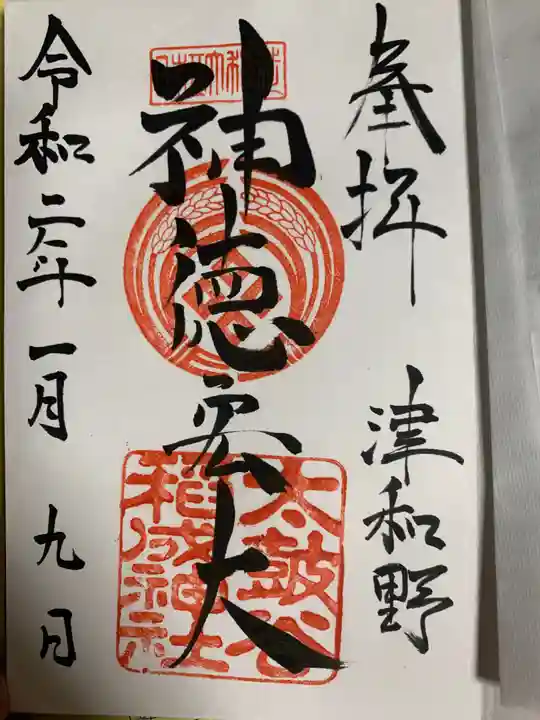 奉拝　津和野
神徳宏大
太鼓谷
稲成神社
令和二年一月九日